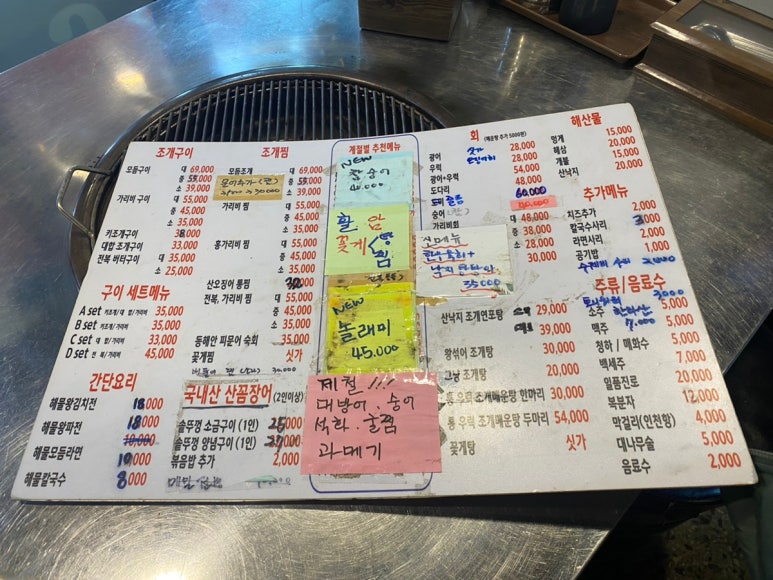 조개구이
모듬구이 대 69,000
중 55,000
소 39,000
가리비구이 대 55,000
중 45,000
소 35,000
키조개구이
대합 조개구이 33,000
전복 버터구이 대 35,000
소 25,000
구이 세트메뉴
A set 키조개/대합/가리비 35,000
B set 키조개/가리비 35,000
C set 대합/가리비 33,000
D set 전복/가리비 45,000
간단요리
해물왕김치전 18,000
해물왕파전 18,000
10,000
해물모듬라면 10,000
해물칼국수 8,000
조개찜
모듬조개 대 69,000
중 55,000
소 39,000
문어추가(판)
가리비 찜 대 55,000
중 45,000
소 35,000
홍가리비 찜 대 55,000
중 45,000
소 35,000
산오징어 통찜
전복, 가리비 찜 대 55,000
중 45,000
소 35,000
동해안 피문어 숙회 35,000
꽃게찜 싯가
30,000
국내산 산꼼장어 (2인이상)
솔뚜껑 소금구이 (1인) 25,000
솔뚜껑 양념구이 (1인)
볶음밥 추가 2,000
계절별 추천메뉴
NEW
왕숭어
40.000
활 암
꽃게
찜
NEW
놀래미
45.000
제철 !!!
대방어. 숭어
석화. 굴찜
과메기
회 (매운탕 추가 5000원)
광어 28,000
우럭 28,000
광어+우럭 54,000
도다리 48,000
60,000
가리비회 대 48,000
중 38,000
소 28,000
30,000
신메뉴
낙지 탕탕이
35000
산낙지 조개연포탕 29,000
39,000
왕섞어 조개탕 30,000
그냥 조개탕 20,000
통 우럭 조개매운탕 한마리 30,000
통 우럭 조개매운탕 두마리 54,000
꽃게탕 싯가
해산물
멍게 15,000
해삼 20,000
개불 15,000
산낙지 20,000
추가메뉴
치즈추가 2,000
칼국수사리 3,000
라면사리 2,000
공기밥 1,000
수제비 사리 2,000
주류/음료수
토닉워터 3000
소주 5,000
한라산 7.000
맥주 5,000
청하 / 매화수 5,000
백세주 7,000
일품진로 20,000
복분자 12,000
막걸리(인천향) 4,000
대나무술 5,000
음료수 2,000